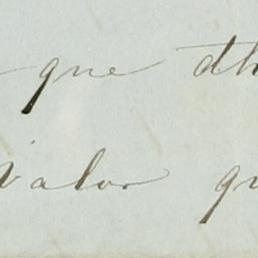 que dh
Valor qu